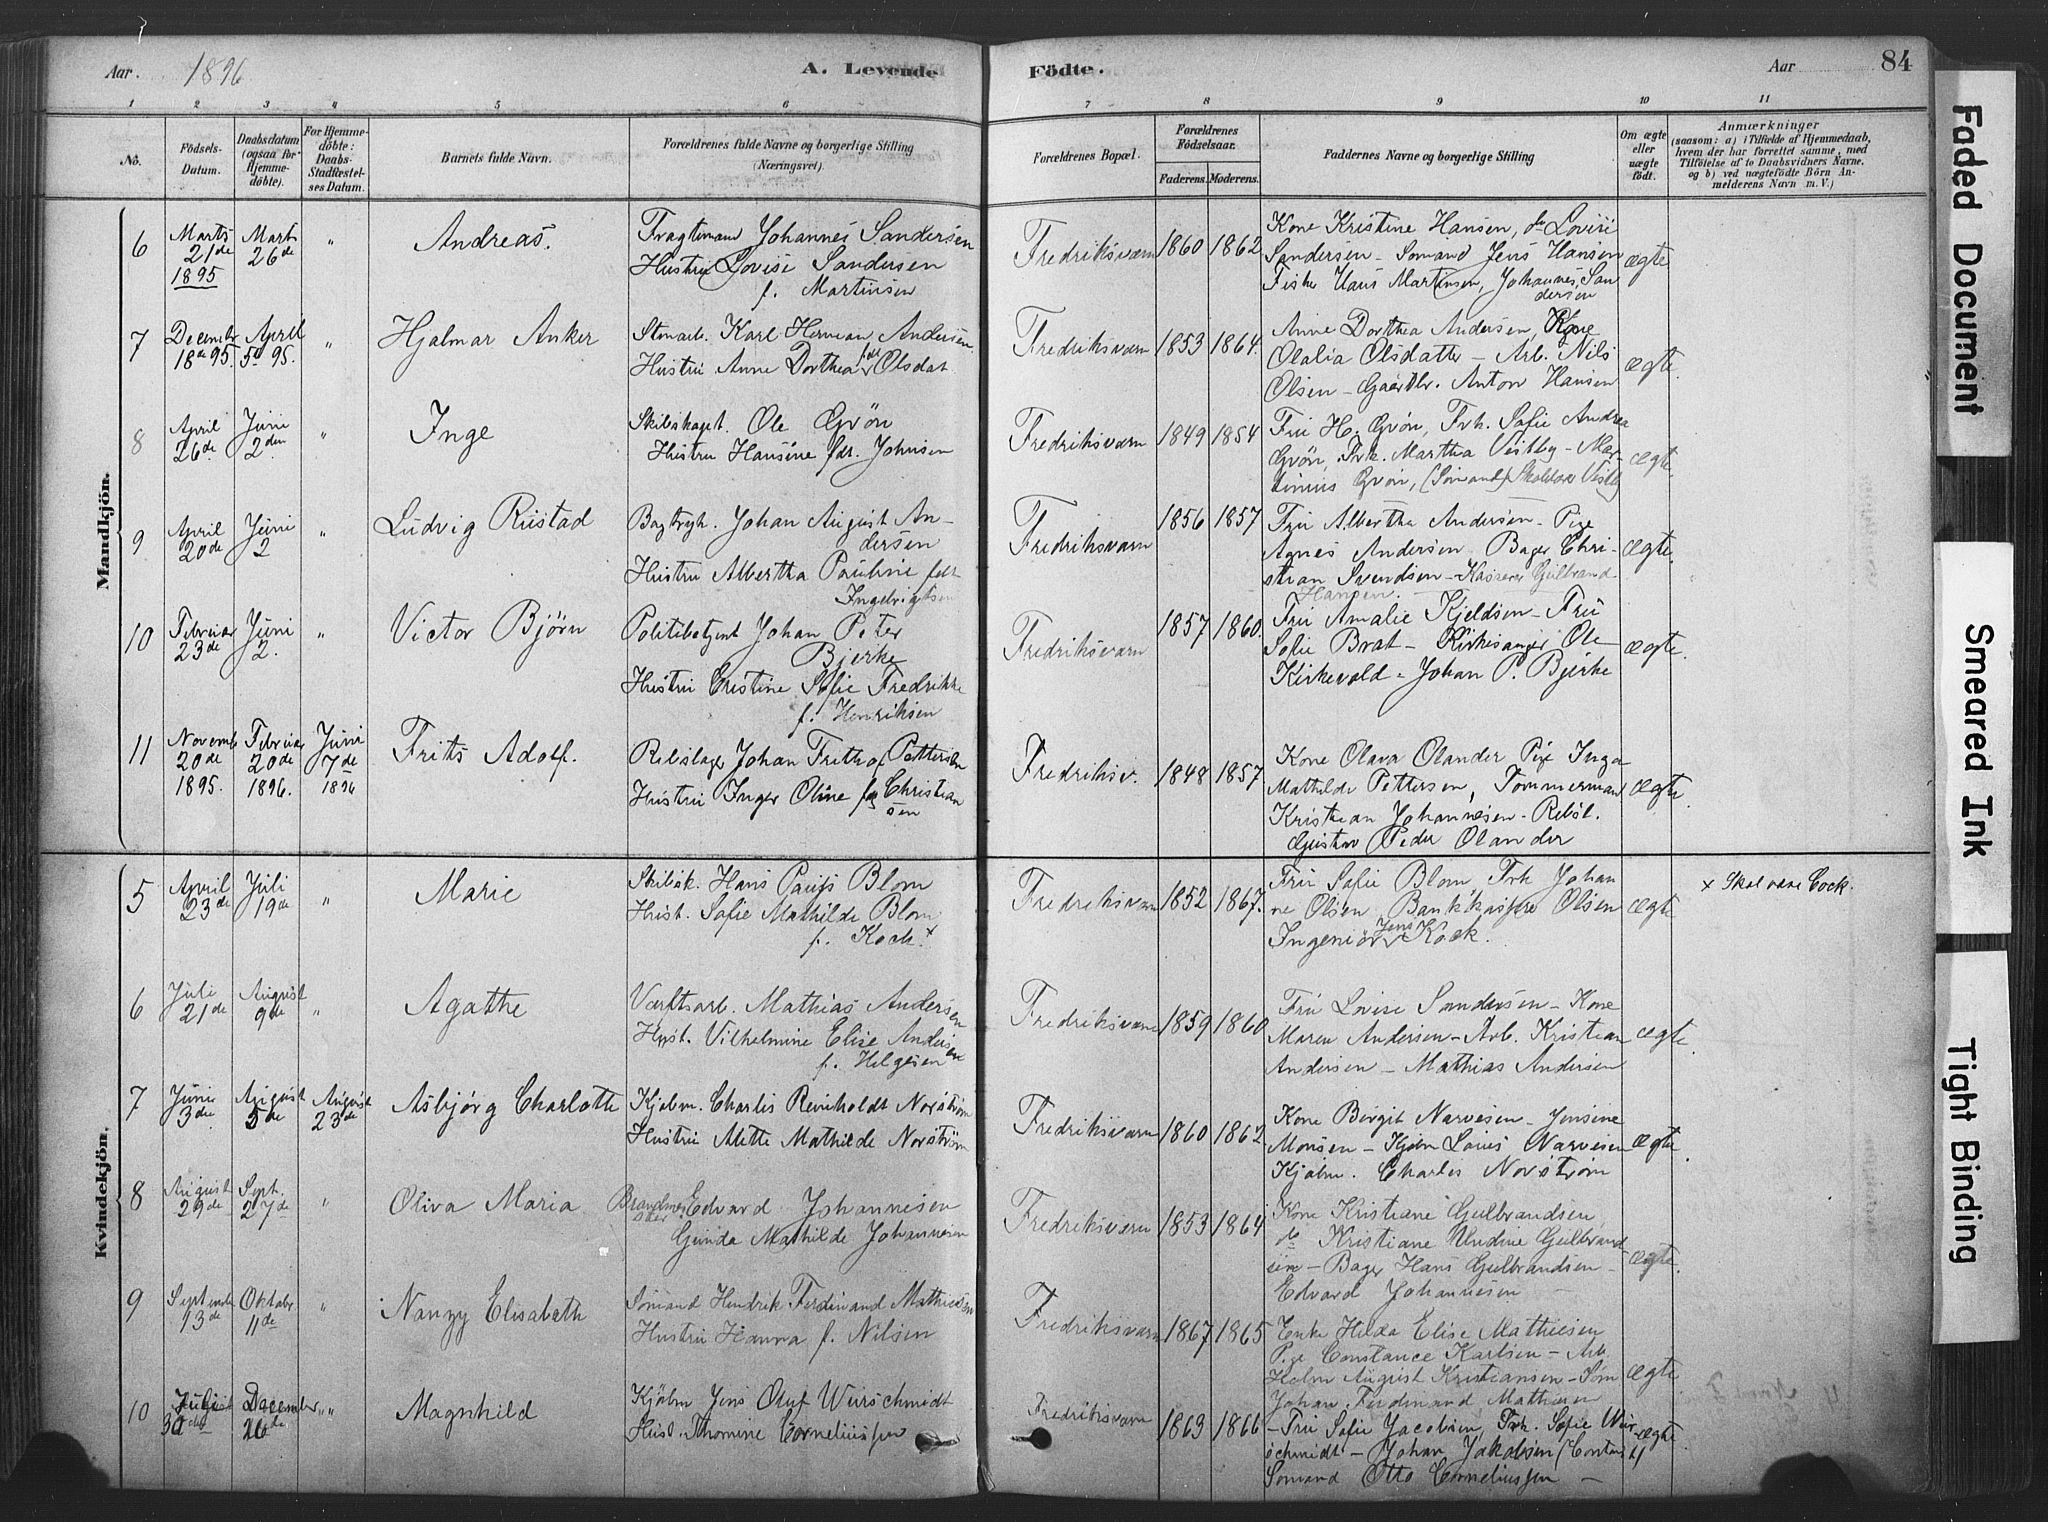 Aar. 1896 A. Levende Födte. Aar 84
1 2 3 4 5 6 7 8 9 10 11
No. Födsels-Datum. Daabsdatum (ogsaa for Hjemmedöbte). For Hjemmedöbte: Daabs-Stadfæstelses Datum. Barnets fulde Navn. Forældrenes fulde Navne og borgerlige Stilling (Næringsvei). Forældrenes Bopæl. Forældrenes Födselsaar. Faderens. Moderens. Faddernes Navne og borgerlige Stilling Om ægte eller uægte födt. Anmærkninger (saasom: a) i Tilfælde af Hjemmedaab, hvem der har forrettet samme, med Tilföielse af to Daabsvidners Navne, og b) ved uægtefödte Börn Anmelderens Navn m. V.)
Mandkjön.
6 Marts 21de 1895 Marts 26de " Andreas. Fragtemand Johannes Sandersen
Hustru Lovise Sandersen
f. Martinsen
Fredriksværn 1860 1862 Kone Kristine Hansen, do Lovise
Sandersen - Sømand Jens Hansen
Fisker Hans Martinsen, Johannes San
dersen
ægte
7 Decembr 18de 95. April 5te 95. " Hjalmar Anker Stenarb. Karl Herman Andersen
Hustru Anne Dorthea fdt Olsdat.
Fredriksværn 1853 1864. Anne Dorthea Andersen, Kone
Olalia Olsdatter - Arb. Nils
Olsen - Gaardbr. Anton Hansen
ægte.
8 April 26de Juni 2den " Inge Skibskapt. Ole Grön
Hustru Hansine fdt. Johnsen
Fredriksværn 1849 1854 Fru H. Grön, Frk. Sofie Andrea
Grön, Frk. Martha Vestby - Mar-
tinius Grön, (Sömand)
ægte.
9 April 20de Juni 2 " Ludvig Rustad Bagtryk. Johan August An-
dersen
Hustru Albertha Pauline fdt
Ingebrigtsen
Fredriksværn 1856 1857 Fru Albertha Andersen - Pige
Agnes Andersen Bager Chri-
stian Svendsen - Kasserer Gulbrand
Hansen.
ægte.
10 Februar 23de Juni 2. " Victor Björn Politibetjent Johan Peter
Bjerke
Hustru Cristine Sofie Fredrikke
f. Henriksen
Fredriksværn 1857 1860. Fru Amalie Kjeldsen - Fru
Sofie Brat - Kirkesanger Ole
Kirkevold - Johan P. Bjerke
ægte.
11 Novemb 20de 1895. Februar 20de 1896. Juni 7de 1896 Frits Adolf. Rebslager Johan Frithof Pettersen
Hustru Inger Oline fdt Christian
sen
Fredriksv. 1848 1857 Kone Olava Olander Pige Inga
Mathilde Pettersen, Tømmermand
Kristian Johannesen - Rebsl.
Gustav Peder Olander
ægte.
Kvindekjön.
5 April 23de Juli 19de " Marie Skibsk. Hans Pauss Blom
Hust. Sofie Mathilde Blom
f. Kock. x
Fredriksværn 1852 1867. Fru Sofie Blom Frk Johan
ne Olsen Bankkasserer Olsen
Ingeniör Jens Kock.
ægte x Skal være Cock.
6 Juli 21de August 9de " Agathe Værftsarb. Mathias Andersen
Hust. Vilhelmine Elise Andersen
f. Helgesen
Fredriksværn 1859 1860 Fru Lovise Sandersen - Kone
Maren Andersen - Arb. Kristian
Andersen - Mathias Andersen
ægte.
7 Juni 3de August 5de August 23de Asbjørg Charlotte Kjøbm. Charles Reinholdt Norström
Hustru Alette Mathilde Norström
Fredriksværn 1860 1862 Kone Birgit Narvesen - Jensine
Monsen - Kjøbm Louis Narvesen
Kjøbm. Charles Norström
ægte.
8 August 29de Sept. 27de " Oliva Maria Brandmester Edvard Johannesen
Gunda Mathilde Johannesen
Fredriksværn 1853 1864 Kone Kristiane Gulbrandsen
do Kristiane Undine Gulbrand
sen - Bager Hans Gulbrandsen -
Edvard Johannesen -
ægte.
9 Septembr 13de Oktobr 11de " Nanzy Elisabeth Sømand Hendrik Ferdinand Mathiesen
Hustru Hanna f. Nilsen
Fredriksværn 1867 1865 Enke Hilda Elise Mathiesen
Pige Constance Karlsen - Arb.
Holm August Kristiansen - Søm
Johan Ferdinand Mathiesen
ægte
10 30de December 26de " " Magnhild Kjöbm Jens Oluf Wirschmidt
Hust. Thomine Corneliussen
Fredriksværn 1863 1866 - Fru Sofie Jacobsen, Frk. Sofie Wir
schmidt - Johan Jakobsen (Contorist)
Sømand Otto Corneliussen -
ægte
Faded Document
Smeared Ink
Tight Binding